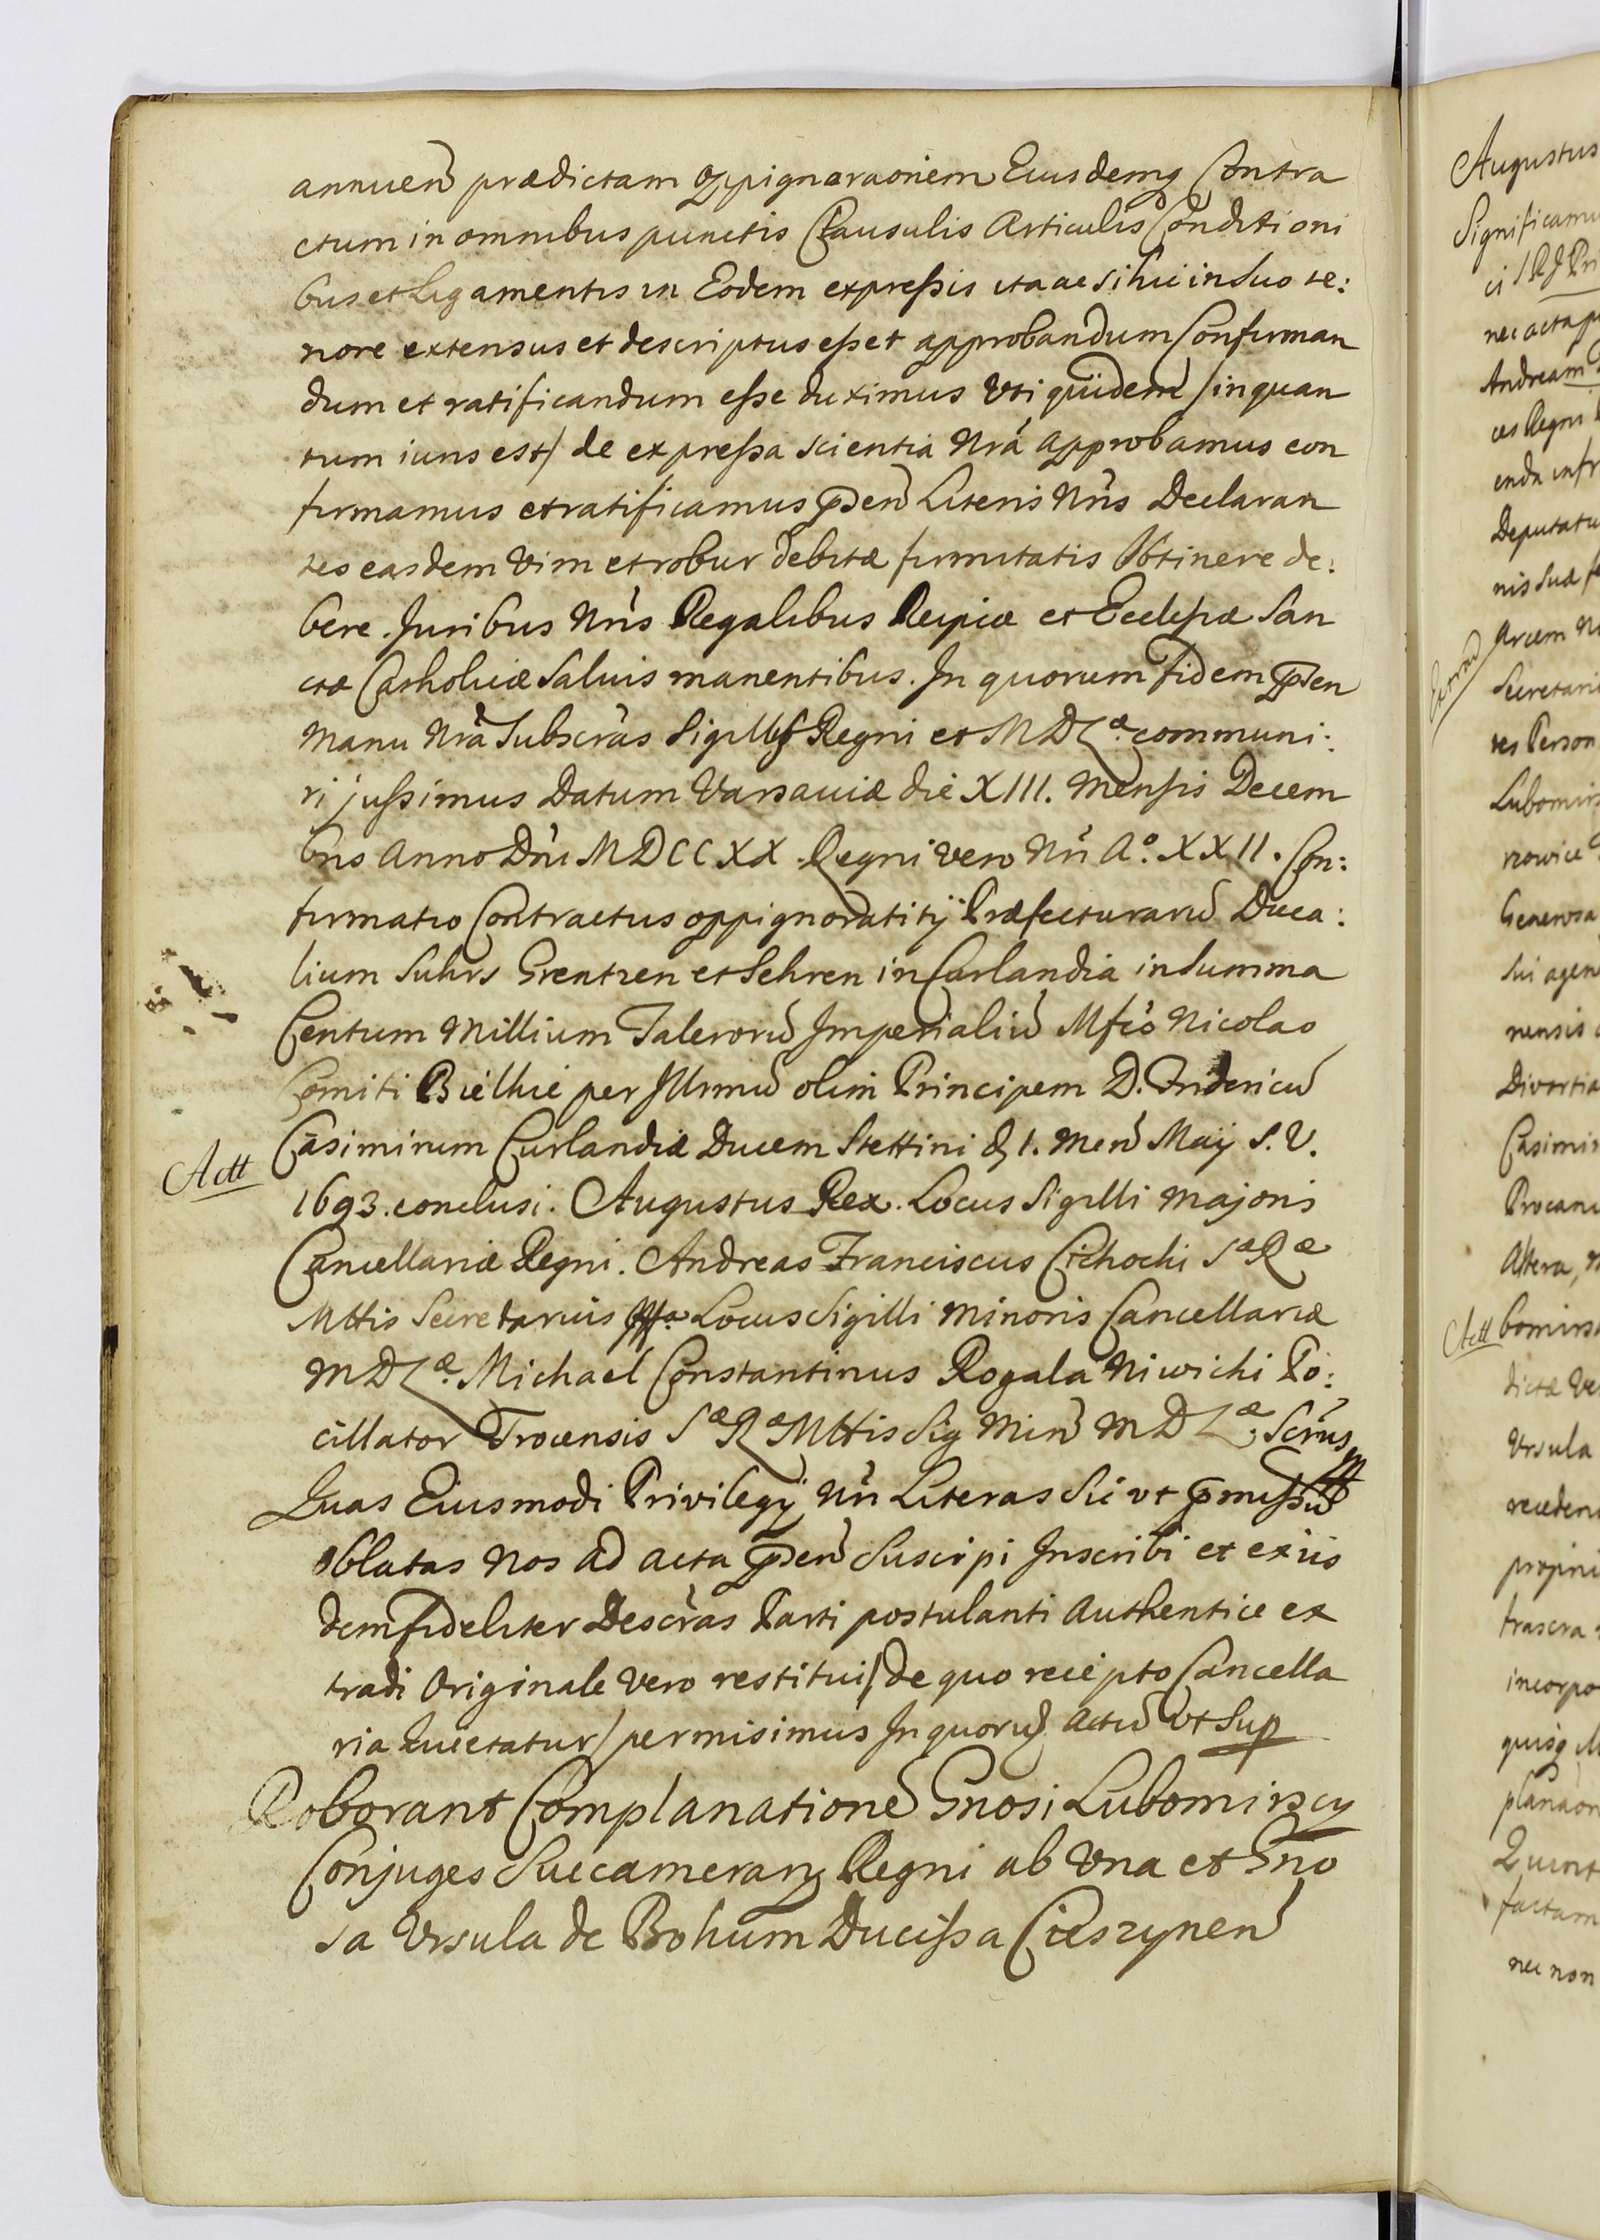 annuen̄ prædictam oppignoraōnem Eiusdemq Contra
ctum in omnibus punctis Clausulis Articulis Conditioni
bus et Ligamentis in Eodem expressis ita ac si hic in suo te:
nore extensus et descriptus esset approbandum Confirman
dum et ratificandum esse duximus Uti quidem /in quan
tum iuris est/ de expressa scientia Nrā approbamus con
firmamus et ratificamus p̄sen̄ Literis Nr̄is Declaran
tes easdem vim et robur debitæ firmitatis Obtinere de:
bere. Juribus Nr̄is Regalibus Reipcæ et Ecclesiæ San
ctæ Catholicæ Salvis manentibus. In quorum fidem p̄sen
Manu Nrā Subscr̄as Sigillis Regni et M D L.æ communi:
ri jussimus Datum Varsaviæ die XIII. Mensis Decem
bris Anno Dn̄i MDCCXX. Regni vero Nr̄i A.o XXII. Con:
firmatio Contractus oppignoratitij Præfecturarū Duca:
lium Suhrs Grentzen et Sehren in Curlandia in Summa
Centum Millium Talerorū Imperialiū Mfcō Nicolao
Comiti Bielhie per Illrmū olim Principem D. Fridericū
Casimirum Curlandiæ Ducem Stettini d. 1. Men̄ Maij S. V.
Actt
1693. conclusi. Augustus Rex. Locus Sigilli Majoris
Cancellariæ Regni. Andreas Franciscus Cichocki Sæ Ræ
Mttis Secretarius Locus Sigilli Minoris Cancellariæ
M D L.æ Michael Constantinus Rogala Niwicki Po:
cillator Trocensis Sæ Ræ Mttis Sig Min̄ M D L.æ Scr̄ius
Quas Eiusmodi Privilegij Nr̄i Literas Sic ut p̄missū
Oblatas Nos ad acta p̄sen̄ Suscipi Inscribi et ex iis
dem fideliter Descr̄as Parti postulanti Authentice ex
tradi Originale vero restitui /de quo recepto Cancella
ria quietatur/ permisimus In quorū Actū ut Sup
Roborant Complanationē Gnosi Lubomirscy
Conjuges Succamerarij Regni ab Una et Gno
sa Ursula de Bohum Ducissa Cieszynen̄
Augustus
Significamu
nec acta p
Andream
ces Regni
enda infr
Deputatu
nis Suæ f
Arcem N
Secretari
tes Person
Lubomirs
Generosa
Sui agen
nensis
Divortia
Casimir
Procanc
Altera,
Actt
bomirs
dictæ Ve
Ursula
recedens
propri
incorpo
planaōn
factam
nec non